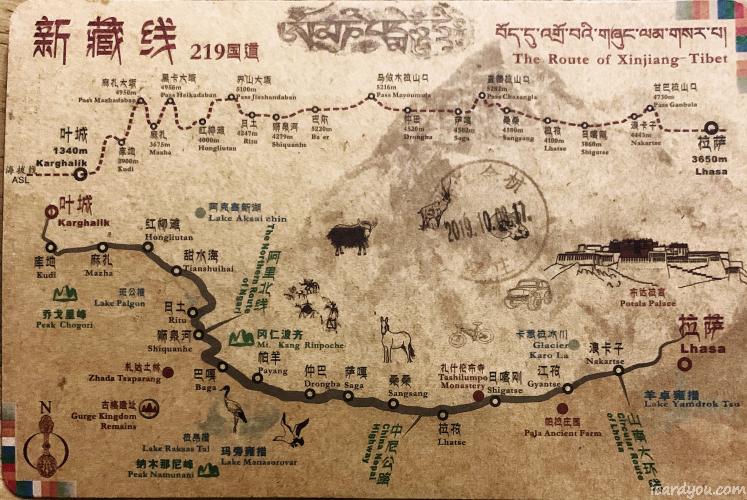 新藏线 219国道
བོད་དུ་འགྲོ་བའི་གཞུང་ལམ་གསར་པ།
The Route of Xinjiang-Tibet
麻扎大坂
4950m
Pass Mazhadaban
黑卡大坂
4950m
Pass Heikadaban
界山大坂
5100m
Pass Jieshandaban
马攸木拉山口
5216m
Pass Mayoumula
5282m
Pass Chazangla
甘巴拉山口
4750m
Pass Ganbala
叶城
1340m
Karghalik
海拔线
ASL
库地
2900m
Kudi
麻扎
3675m
Mazha
红柳滩
4000m
Hongliutan
日土
4247m
Ritu
狮泉河
4279m
Shiquanhe
巴尔
5220m
Ba er
仲巴
4520m
Drongba
萨嘎
4502m
Saga
桑桑
4580m
Sangsang
拉孜
4100m
Lhatse
日喀则
3860m
Shigatse
浪卡子
4445m
Nakartse
拉萨
3650m
Lhasa
叶城
Karghalik
库地
Kudi
麻扎
Mazha
红柳滩
Hongliutan
甜水海
Tianshuihai
阿克赛新湖
Lake Aksai chin
阿里北线
The Northern Route of Ngari
班公措
Lake Palgon
乔戈里峰
Peak Chogori
日土
Ritu
狮泉河
Shiquanhe
冈仁波齐
Mt. Kang Rinpoche
札达土林
Zhada Tsaparang
古格遗址
Gurge Kingdom
Remains
巴嘎
Baga
帕羊
Payang
仲巴
Drongba
萨嘎
Saga
桑桑
Sangsang
拉孜
Lhatse
拉昂错
Lake Raksas Tal
玛旁雍措
Lake Manasorovar
纳木那尼峰
Peak Namunani
中尼公路
China Nepal Highway
扎什伦布寺
Tashilumpo
Monastery
日喀则
Shigatse
江孜
Gyantse
帕拉庄园
Pala Ancient Farm
卡惹拉冰川
Glacier
Karo La
浪卡子
Nakartse
布达拉宫
Potala Palace
拉萨
Lhasa
羊卓雍措
Lake Yamdrok Tsu
山南大环线
Circular Route of Lhoka
N
2019.10.09.17.
icardyou.com